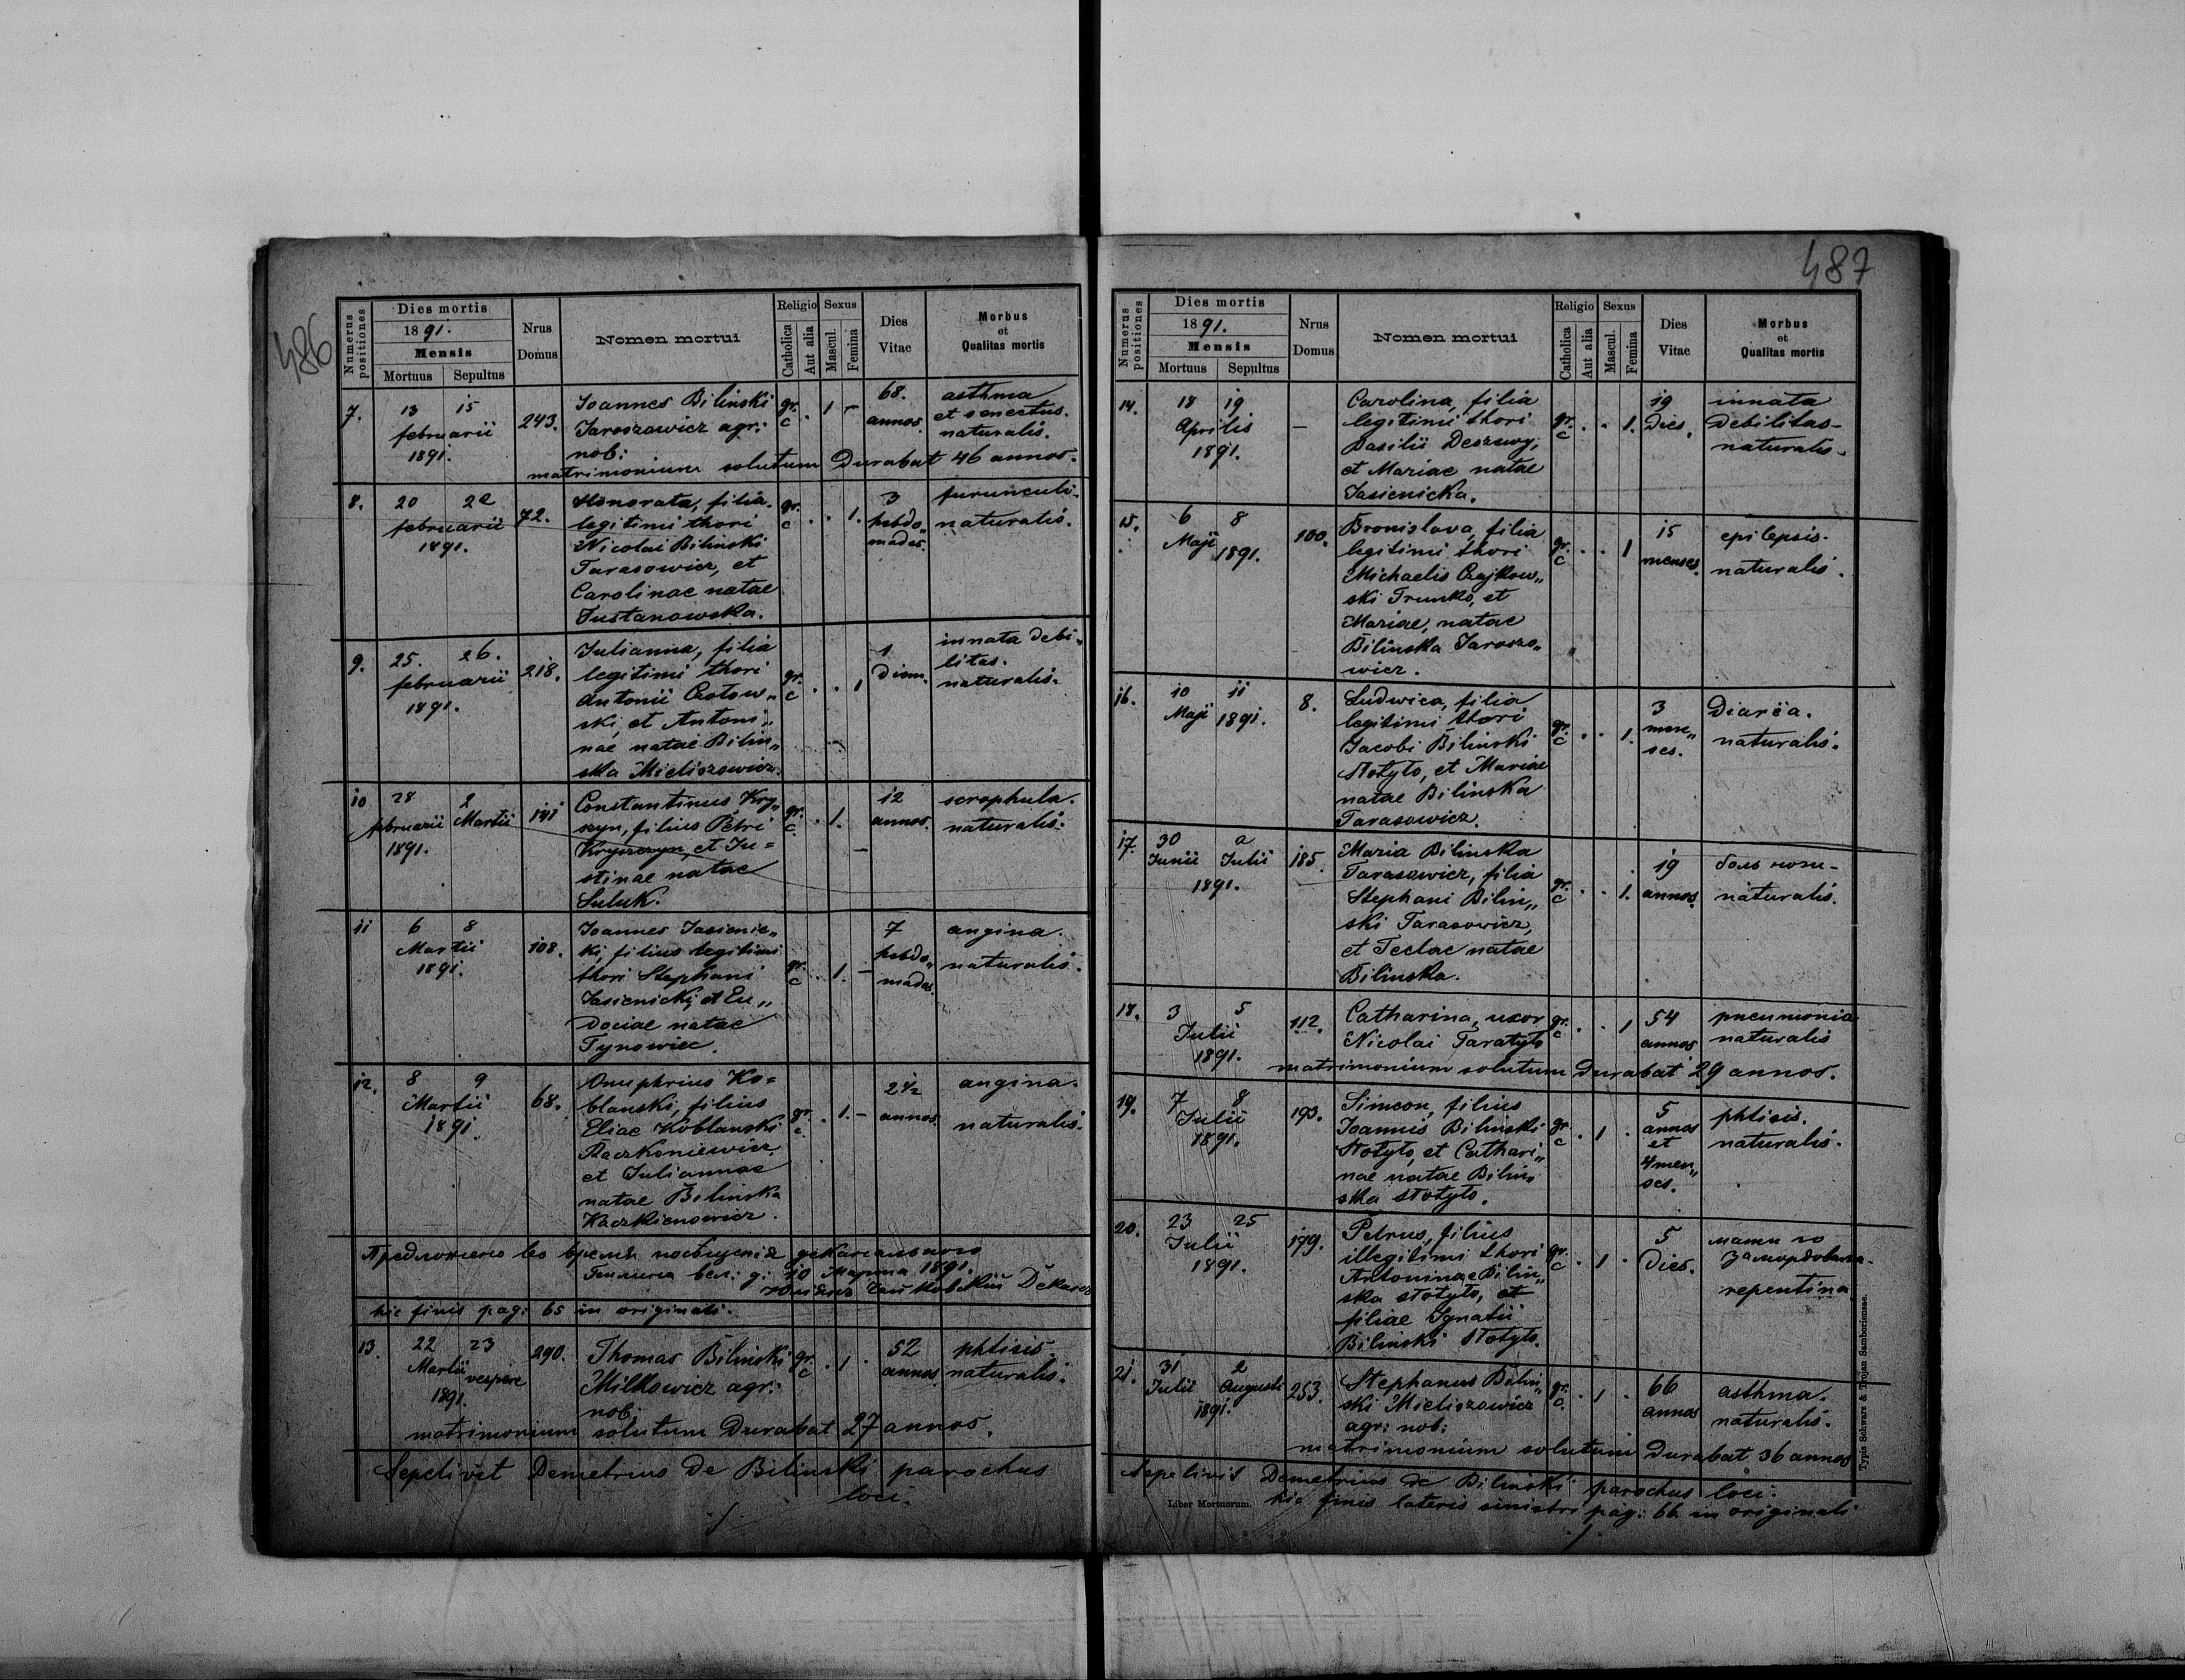 486
Numerus positiones
Dies mortis
1891.
Mensis
Mortuus Sepultus
Nrus Domus
Nomen mortui
Religio
Catholica
Aut alia
Sexus
Mascul.
Femina
Dies Vitae
Morbus et Qualitas mortis
7. 13 15 243. Joannes Bilinski gr. . 1 – 68. asthma
februarii Jaroszowicz agr: c annos. et senectus.
1891. nob: naturalis.
matrimonium solutum Durabat 46 annos.
8. 20 22 72. Honorata, filia gr. . . 1. 3 furunculi.
februarii legitimi thori c hebdo„ naturalis.
1891. Nicolai Bilinski madas.
Tarasowicz, et
Carolinae natae
Tustanowska.
9. 25. 26. 218. Julianna, filia 1 innata debi„
februarii legitimi thori gr. . . 1 Diem. litas.
1891. Antonii Czotow„ c naturalis.
ski, et Antoni„
nae natae Bilin„
ska Mieliszowicz.
10 28 2 141 Constantinus Kry„ gr. . 1. 12 scrophula.
februarii Martii szyn, filius Petri c annos. naturalis.
1891. Kryszczyn, et Ju=
stinae natae
Suluk.
11 6 8 108. Joannes Jasienic„ 7 angina.
Martii ki, filius legitimi gr. . 1. – hebdo„ naturalis.
1891. thori Stephani c madas.
Jasienicki, et Eu„
dociae natae
Tynowiec.
12. 8 9 68. Onuphrius Ko= 2½ angina.
Martii blanski, filius gr. . 1. – annos. naturalis.
1891. Eliae Koblanski c.
Raczkoniewicz
et Juliannae
natae Bilinska
Kaczkienowicz.
Предложено во время
10 Марта 1891.
hic finis pag: 65 in originali.
13. 22 23 290. Thomas Bilinski gr. . 1 . 52 phtisis.
Martii vespere Milkowicz agr: c annos. naturalis.
1891. nob:
matrimonium solutum Durabat 27 annos.
Sepelivit Demetrius de Bilinski parochus
loci.
487
Numerus positiones
Dies mortis
1891.
Mensis
Mortuus Sepultus
Nrus Domus
Nomen mortui
Religio
Catholica
Aut alia
Sexus
Mascul.
Femina
Dies Vitae
Morbus et Qualitas mortis
14. 18 19 – Carolina, filia 19 innata
Aprilis legitimi thori gr. . . 1. Dies. Debilitas–
1891. Basilii Deszowy, c naturalis.
et Mariae natae
Jasienicka.
15. 6 8 100. Bronislava, filia 15 epilepsis.
Maji 1891. legitimi thori gr. . . 1 menses. naturalis.
Michaelis Czajkow„ c
ski Trunko, et
Mariae, natae
Bilinska Jaroszo„
wicz.
16. 10 11 8. Ludwica, filia 3 Diarëa.
Maji 1891. legitimi thori gr. . . 1. men„ naturalis.
Jacobi Bilinski c ses.
Stotyto, et Mariae
natae Bilinska
Tarasowicz.
17. 30 2 185. Maria Bilinska 19
Junii Julii Tarasowicz, filia gr. . . 1. annos. naturalis.
1891. Stephani Bilin„ c
ski Tarasowicz,
et Teclae natae
Bilinska.
18. 3 5 112. Catharina, uxor gr. . . 1 54 pneumonia
Julii Nicolai Taratyto c annos naturalis
1891.
matrimonium solutum Durabat 29 annos.
19. 7 8 193. Simeon, filius 5 phtisis.
Julii Joannis Bilinski gr. . 1 . annos naturalis.
1891. Stotyto, et Cathari„ c et
nae natae Bilin„ 4 men„
ska Stotyto. ses.
20. 23 25 179. Petrus, filius 5 мати го
Julii illegitimi thori gr. . 1 . Dies. замордовала.
1891. Antoninae Bilin„ c repentina
ska Stotyto, et
filiae Ignatii
Bilinski Stotyto.
21. 31 2 253. Stephanus Bilin„ gr. . 1 . 66 asthma.
Julii Augusti ski Mieliszowicz c. annos naturalis.
1891. agr: nob:
matrimonium solutum Durabat 36 annos
Sepelivit Demetrius de Bilinski parochus loci.
Liber Mortuorum. hic finis lateris sinistri pag: 66 in originali
Typis Schwarz & Trojan Samboriensae.